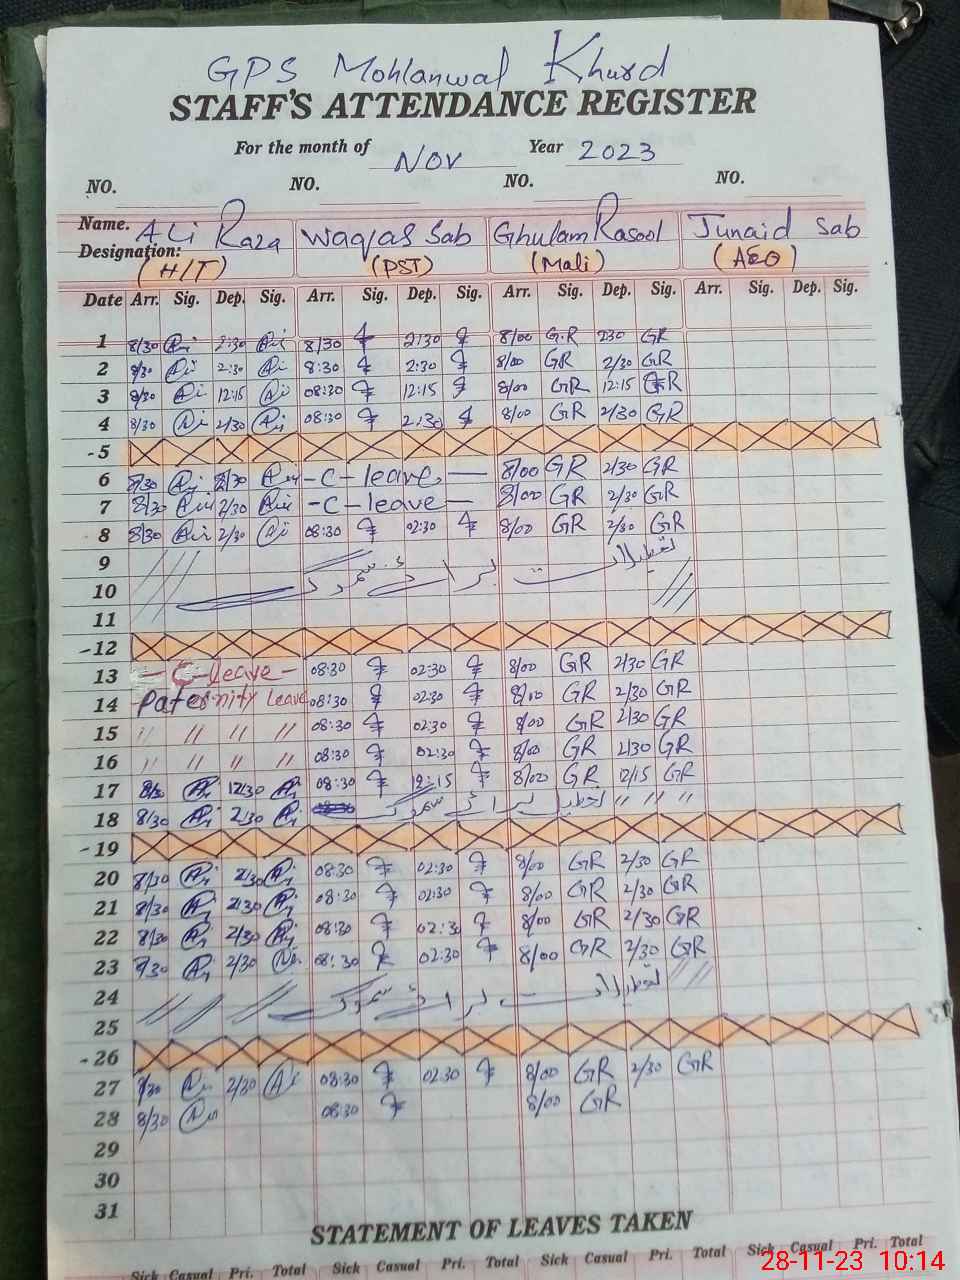 GPS Mohlanwal Khurd
STAFF'S ATTENDANCE REGISTER
For the month of Nov Year 2023
NO. NO. NO. NO.
Name. Ali Raza Waqas Sab Ghulam Rasool Junaid Sab
Designation: (H/T) (PST) (Mali) (AEO)
Date Arr. Sig. Dep. Sig. Arr. Sig. Dep. Sig. Arr. Sig. Dep. Sig. Arr. Sig. Dep. Sig.
1 8/30 Ali 2:30 Ali 8/30 2:30 8/00 G.R 230 GR
2 8/30 Ali 2:30 Ali 8:30 2:30 8/00 GR 2/30 GR
3 8/30 Ali 12:15 Ali 08:30 12:15 8/00 GR 12:15 GR
4 8/30 Ali 2/30 Ali 08:30 2:30 8/00 GR 2/30 GR
-5
6 8/30 Ali 2/30 Ali - C - leave - 8/00 GR 2/30 GR
7 8/30 Ali 2/30 Ali - C - leave - 8/00 GR 2/30 GR
8 8/30 Ali 2/30 Ali 08:30 02:30 8/00 GR 2/30 GR
9 تعطیلات برائے سموگ
10
11
-12
13 - C - leave - 08:30 02:30 8/00 GR 2/30 GR
14 Paternity leave 08:30 02:30 8/00 GR 2/30 GR
15 // // // // 08:30 02:30 8/00 GR 2/30 GR
16 // // // // 08:30 02:30 8/00 GR 2/30 GR
17 8/30 12/30 08:30 12:15 8/00 GR 12/15 GR
18 8/30 2/30 تعطیل برائے سموگ // // //
-19
20 8/30 2/30 08:30 02:30 8/00 GR 2/30 GR
21 8/30 2/30 08:30 02:30 8/00 GR 2/30 GR
22 8/30 2/30 08:30 02:30 8/00 GR 2/30 GR
23 8/30 2/30 08:30 02:30 8/00 GR 2/30 GR
24 تعطیلات برائے سموگ
25
-26
27 8/30 Ali 2/30 Ali 08:30 02:30 8/00 GR 2/30 GR
28 8/30 Ali 08:30 8/00 GR
29
30
31
STATEMENT OF LEAVES TAKEN
Sick Casual Pri. Total Sick Casual Pri. Total Sick Casual Pri. Total Sick Casual Pri. Total
28-11-23 10:14